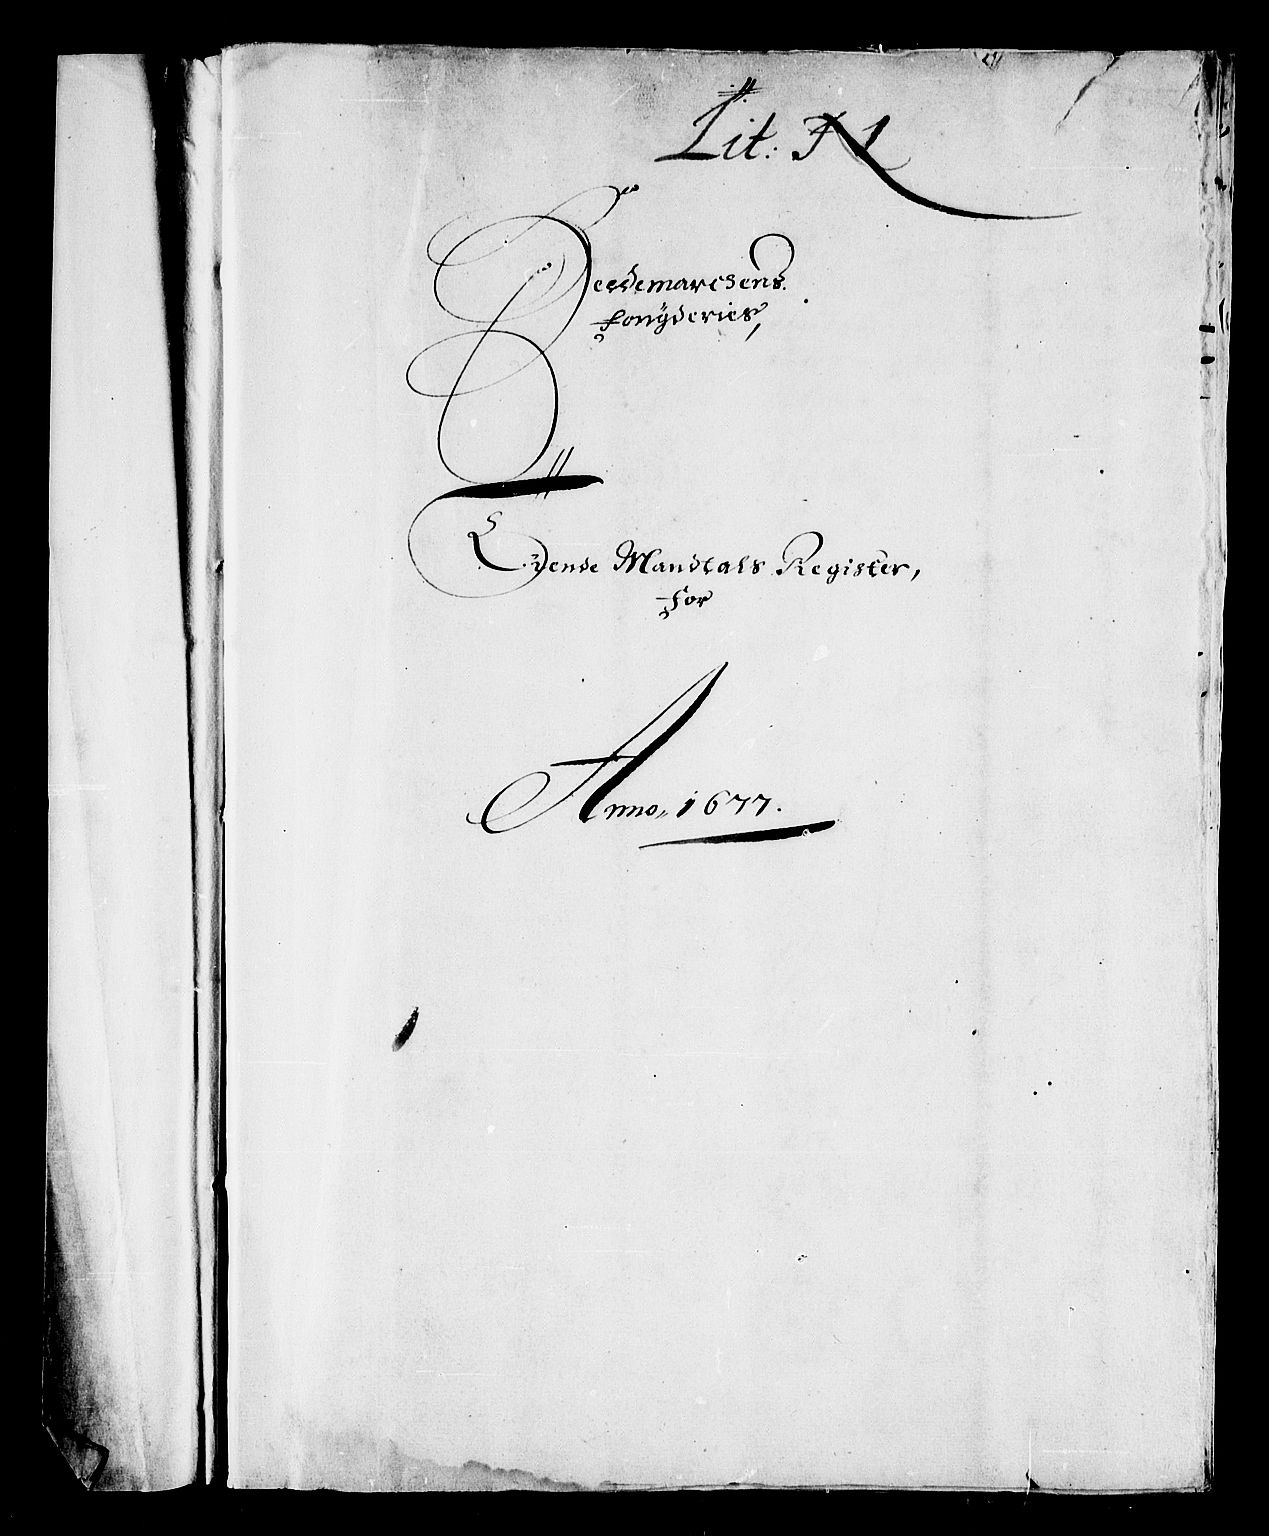 Lit: N
Hedemarchens
Fougderies,
Tiende Mandtals Register,
for
Anno, 1677.